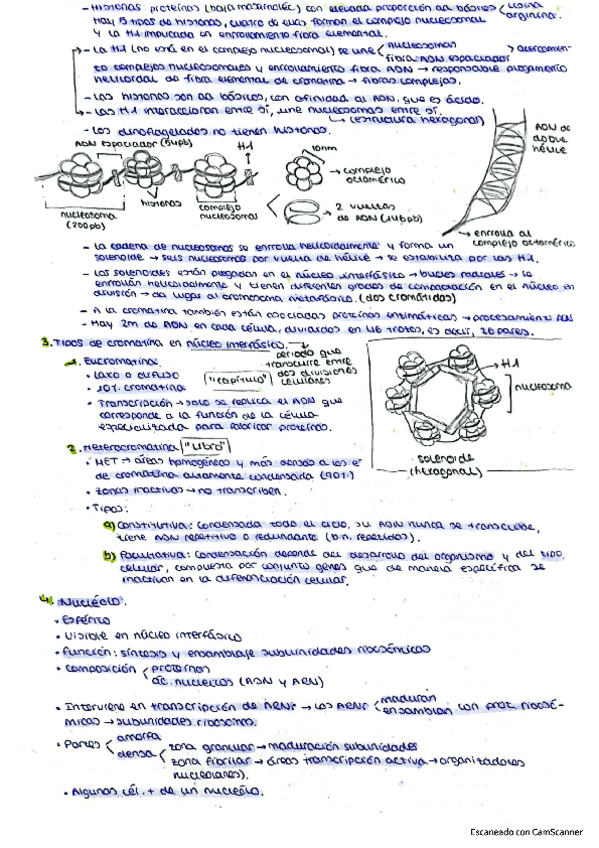 - Histonas: proteínas (baja masa molec) con elevada proporción aa básicos lisina arginina.
Hay 5 tipos de histonas, cuatro de ellas forman el complejo nucleosomal
y la H1 implicada en enrollamiento fibra elemental.
- La H1 (no está en el complejo nucleosomal) se une nucleosomas
fibra ADN espaciador
to complejos nucleosomales y enrollamiento fibra ADN → responsable plegamiento
helicoidal de fibra elemental de cromatina → fibras complejas.
- Las histonas son aa básicos, con afinidad al ADN, que es ácido.
- Las H1 interaccionan entre sí, une nucleosomas entre sí.
(estructura hexagonal)
- Los dinoflagelados no tienen histonas.
ADN espaciador (54pb)
H1
10nm
ADN de doble hélice
complejo octomérico
histonas
nucleosoma (200pb)
complejo nucleosomal
2 vueltas de ADN (146pb)
enrolla al complejo octomérico
- La cadena de nucleosomas se enrolla helicoidalmente y forma un
solenoide → seis nucleosomas por vuelta de hélice → se estabiliza por las H1.
- Los solenoides están plegados en el núcleo interfásico → bucles radiales → se
enrollan helicoidalmente y tienen diferentes grados de compactación en el núcleo en
división → da lugar al cromosoma metafásico. (dos cromátidas)
- A la cromatina también están asociadas proteínas enzimáticas → procesamiento ADN
- Hay 2m de ADN en cada célula, divididos en 46 trozos, es decir, 23 pares.
3. Tipos de cromatina en núcleo interfásico.
periodo que transcurre entre dos divisiones celulares
1. Eucromatina
• Laxo o difuso
• 10% cromatina
"capítulo"
• Transcripción → solo se replica el ADN que
corresponde a la función de la célula
especializada para fabricar proteínas.
H1
nucleosoma
solenoide (hexagonal)
2. Heterocromatina "Libro"
• MET → áreas homogéneas y más densas a los e-
de cromatina altamente condensada (90%)
• Zonas inactivas → no transcriben.
• Tipos:
a) Constitutiva: Condensada todo el ciclo, su ADN nunca se transcribe,
tiene ADN repetitivo o redundante (b.n. repetidas).
b) Facultativa: Condensación depende del desarrollo del organismo y del tipo
celular, compuesta por conjunto genes que de manera específica se
inactivan en la diferenciación celular.
4. Nucléolo.
• Esférico
• Visible en núcleo interfásico
• Función: síntesis y ensamblaje subunidades ribosómicas
• Composición proteínas
ác. nucleicos (ADN y ARN)
• Interviene en transcripción de ARNr → los ARNr maduran
ensamblan con prot. ribosó-
micas → subunidades ribosomas.
• Partes amorfa
densa zona granular → maduración subunidades
zona fibrilar → áreas transcripción activa → organizadores
nucleolares).
• Algunas cél. + de un nucléolo.
Escaneado con CamScanner